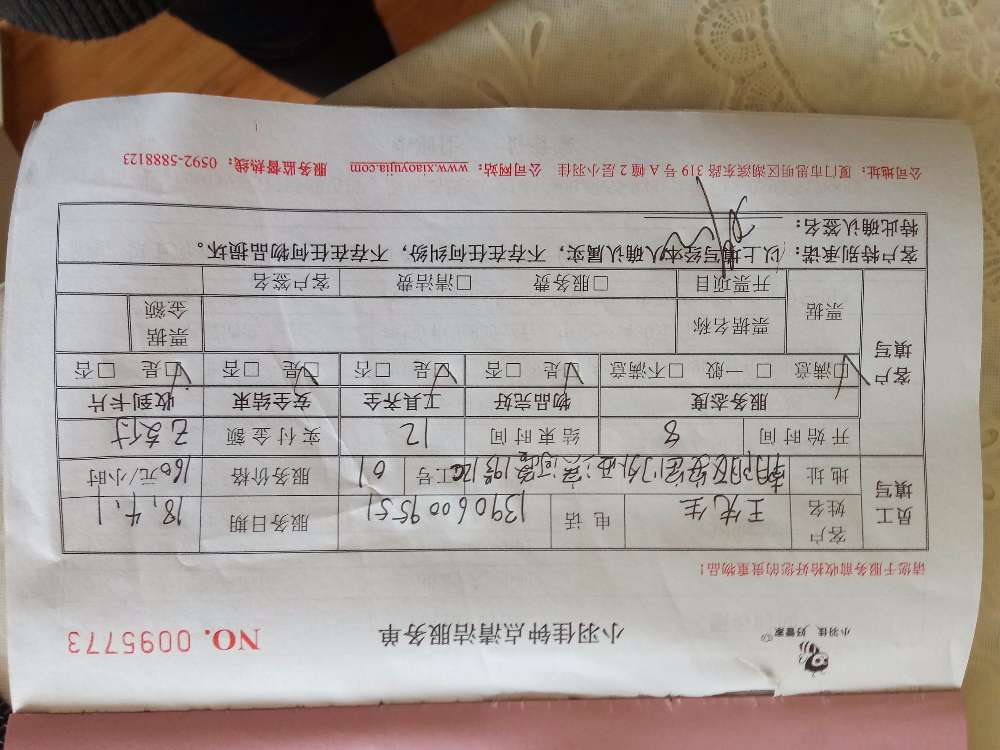 小羽佳 好管家
小羽佳钟点清洁服务单
NO. 0095773
请您于服务前收拾好您的贵重物品！
员工填写
客户姓名 王先生 电话 13906009551 服务日期 18.4.1
地址 工号 61 服务价格 160元/小时
开始时间 8 结束时间 12 实付金额 已支付
客户填写
服务态度 物品完好 工具齐全 安全结束 收到卡片
☑满意 □一般 □不满意 ☑是 □否 ☑是 □否 ☑是 □否 ☑是 □否
票据 票据名称 票据金额
开票项目 □服务费 □清洁费 客户签名
客户特别承诺：以上填写经本人确认属实，不存在任何纠纷，不存在任何物品损坏。
特此确认签名：
公司地址：厦门市思明区湖滨东路 319 号 A 幢 2 层小羽佳 公司网站：www.xiaoyujia.com 服务监督热线：0592-5888123